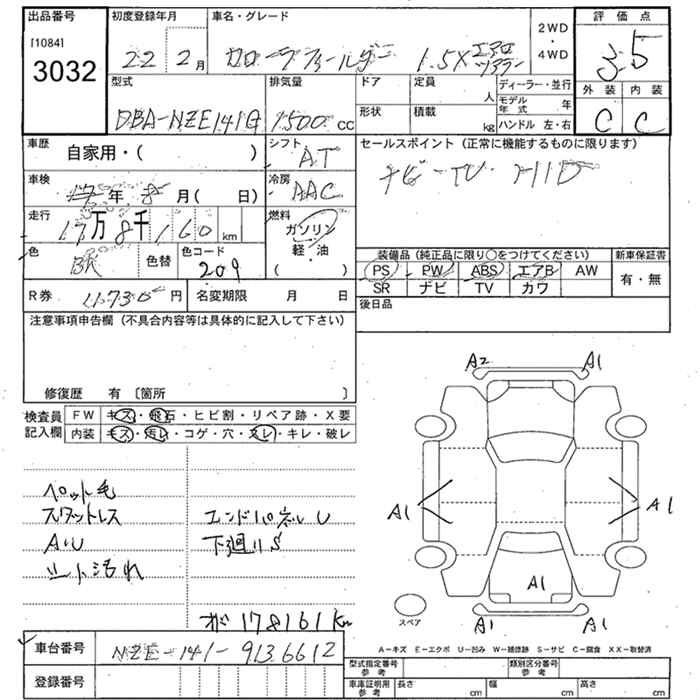 出品番号 初度登録年月 車名・グレード 2WD 評価点
[1084] 22 2月 カローラフィールダー 1.5X エアロツアラー 4WD 3.5
3032 外装 内装
型式 排気量 ドア 定員 人 ディーラー・並行 C C
DBA-NZE141G 1500 cc 形状 積載 kg モデル年式 年
ハンドル 左・右
車歴 自家用・( ) シフト AT セールスポイント (正常に機能するものに限ります)
車検 年 8月( 日) 冷房 AAC ナビ・TV・HID
走行 17万8千160 km 燃料 ガソリン 軽・油 ( )
色 BK 色替 色コード 209 装備品 (純正品に限り○をつけてください) 新車保証書
PS PW ABS エアB AW 有・無
SR ナビ TV カワ
R券 11,730円 名変期限 月 日 後日品
注意事項申告欄 (不具合内容等は具体的に記入して下さい)
修復歴 有 〔箇所 〕
検査員記入欄 FW キズ・飛石・ヒビ割・リペア跡・X要
内装 キズ・汚レ・コゲ・穴・スレ・キレ・破レ
A2 A1
ペット毛
スタットレス エンドパネルU
AU 下廻りS
シート汚れ
A1 A1
A1
A1 A1
スペア
メーター 178161km
A-キズ E-エクボ U-凹み W-補修跡 S-サビ C-腐食 XX-取替済
車台番号 NZE-141-9136612
登録番号
型式指定番号 参考 類別区分番号 参考
車庫証明用 参考 長さ cm 幅 cm 高さ cm